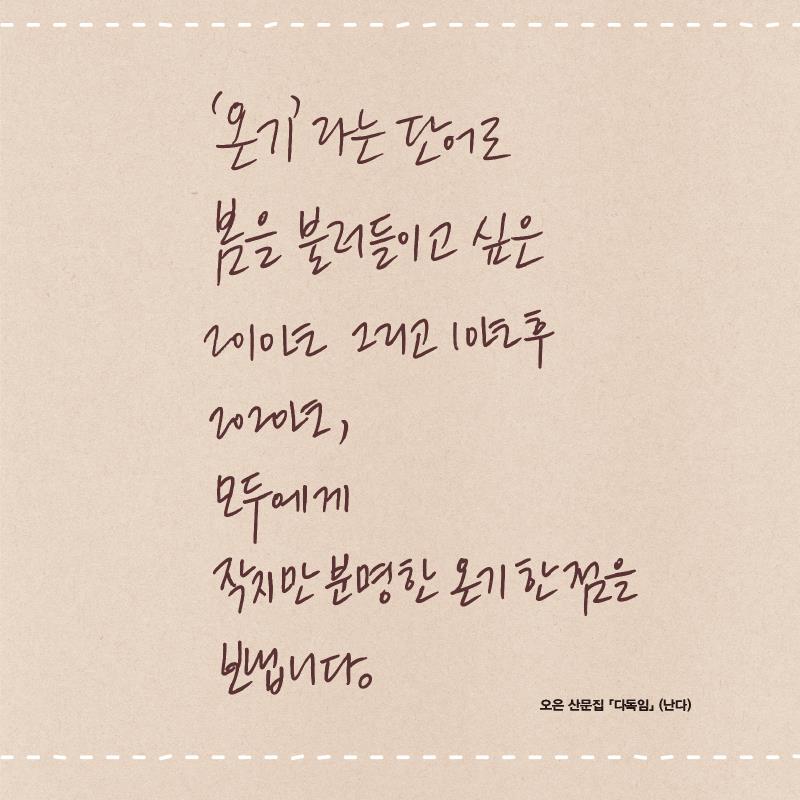 '온기'라는 단어로
봄을 불러들이고 싶은
2010년 그리고 10년 후
2020년,
모두에게
작지만 분명한 온기 한 점을
보냅니다。
오은 산문집 『다독임』 (난다)